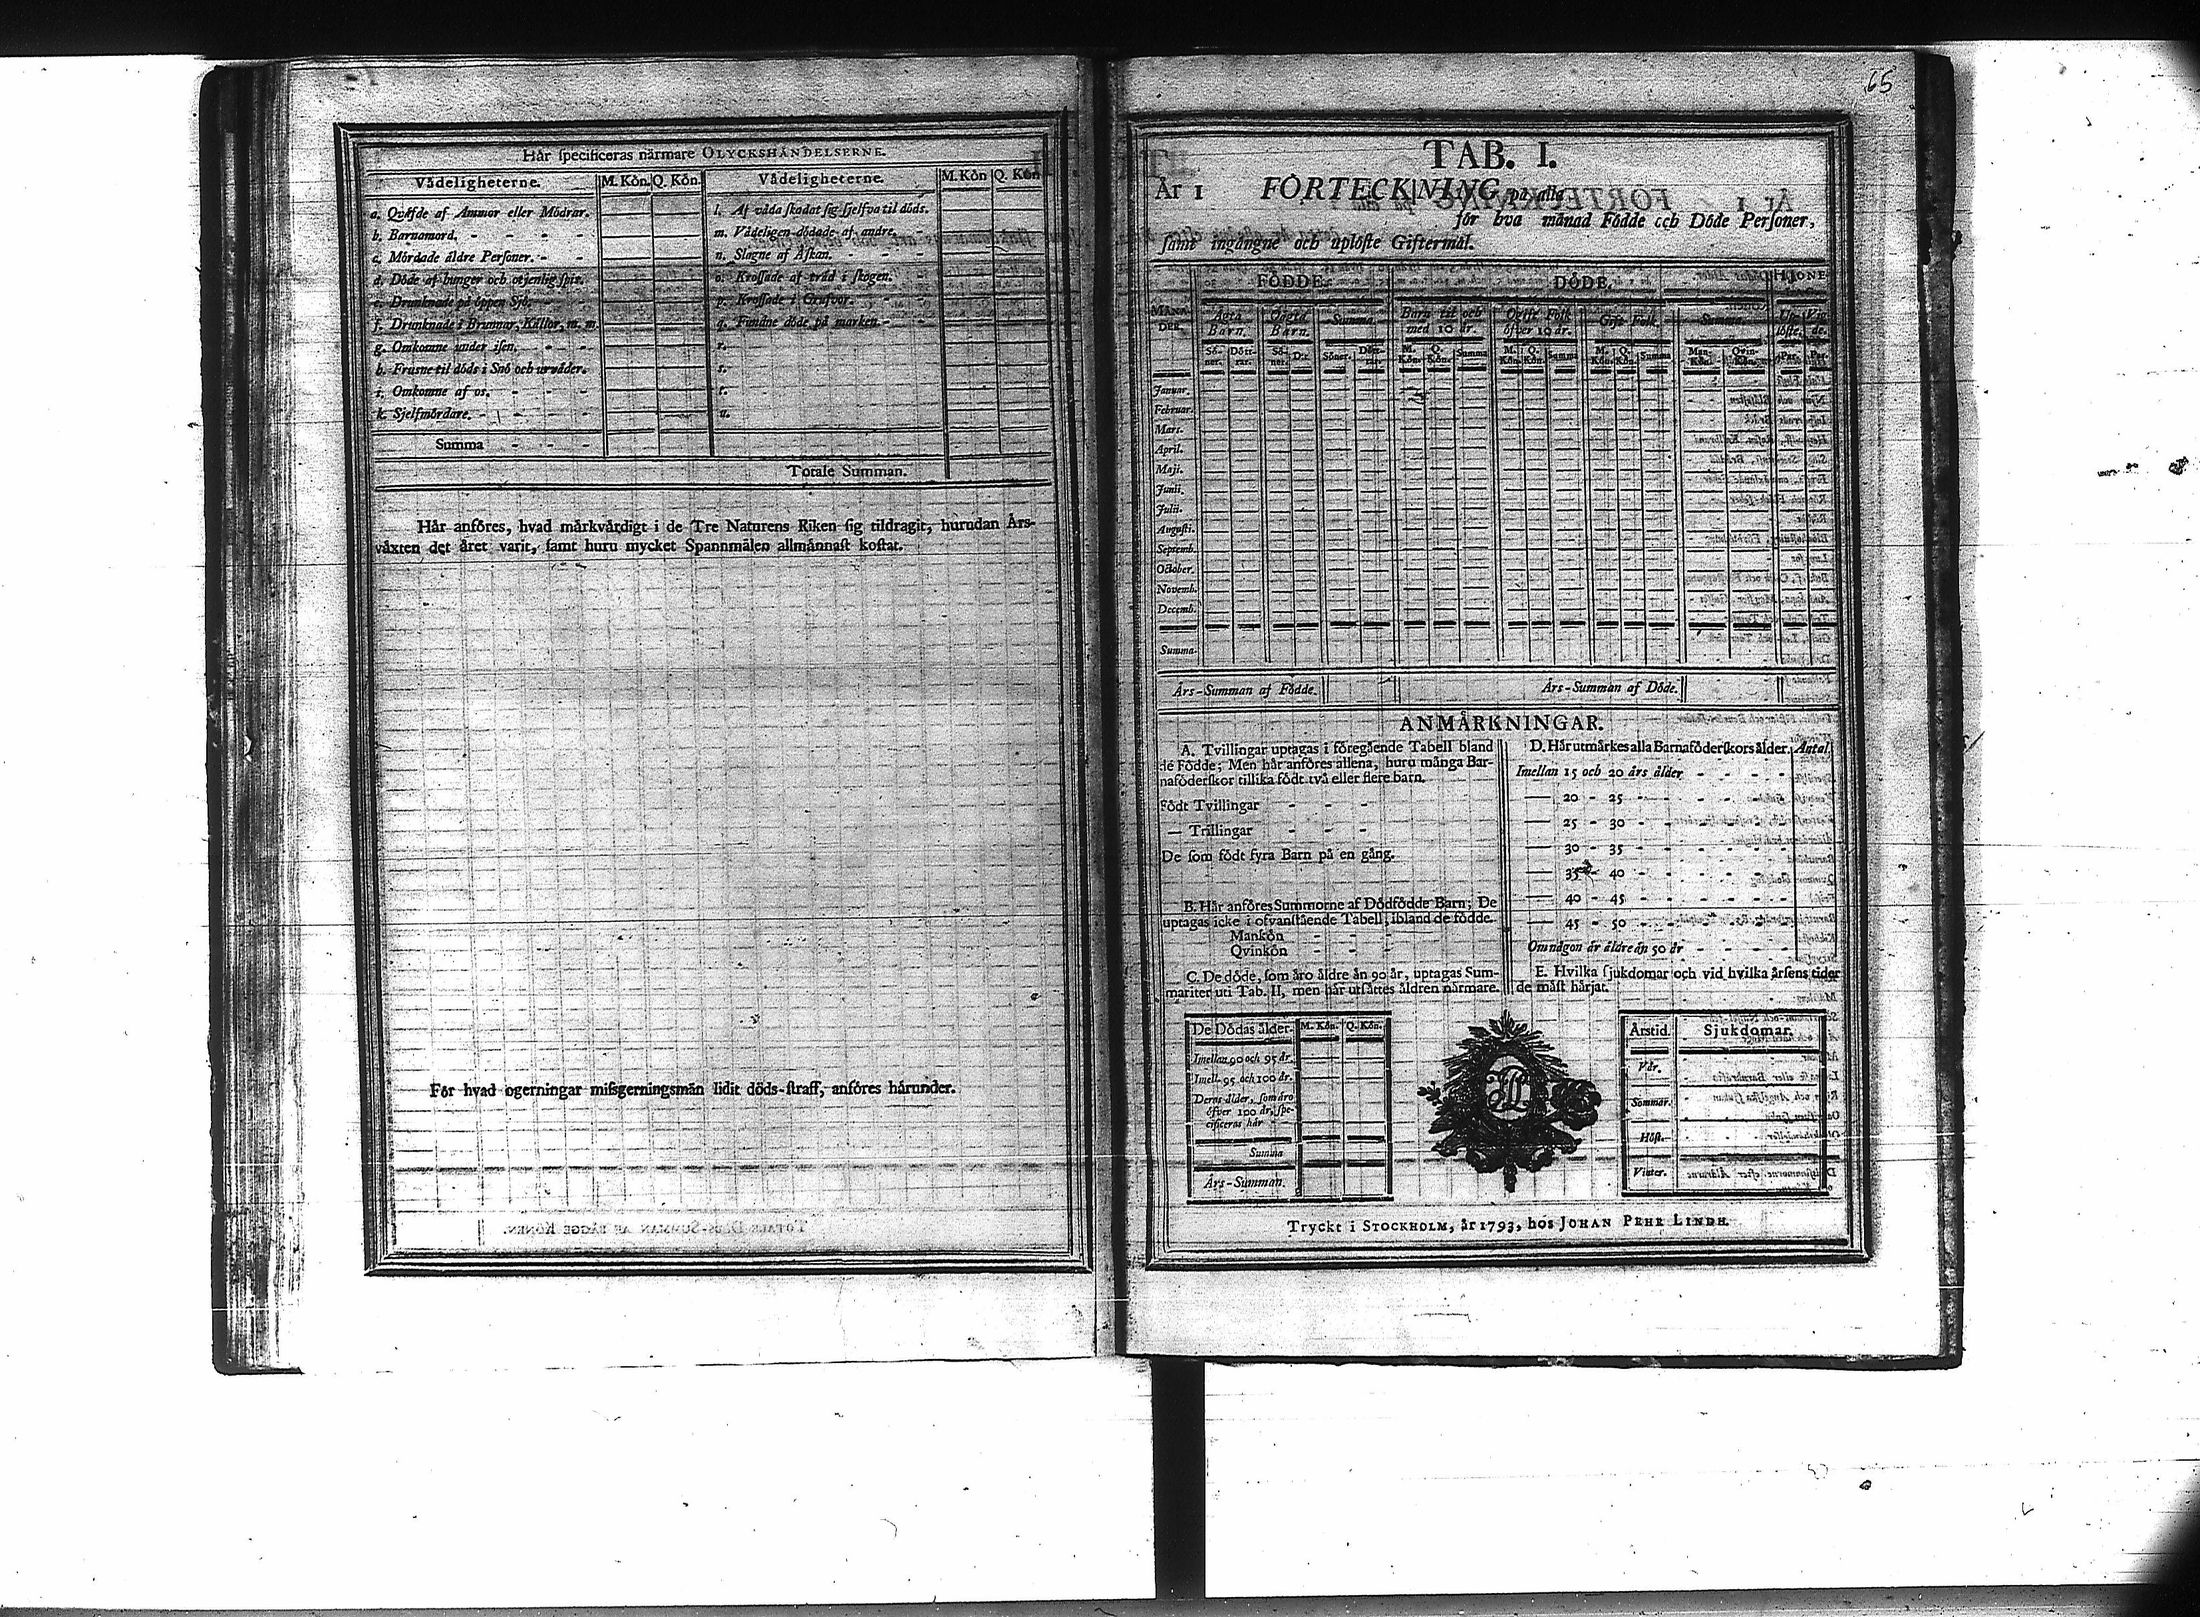 Hår ſpecificeras nårmare OLYCKSHÅNDELSERNE.
Vådeligheterne. M. Kôn. Q. Kôn. Vådeligheterne. M. Kôn Q. Kôn
a. Qvåfde af Ammor eller Môdrar. l. Af våda ſkadat ſig ſjelfva til dôds.
b. Barnamord. - - - - m. Vådeligen dôdade af andre. -
c. Môrdade åldre Perſoner. - - n. Slagne af Åſkan. - - -
d. Dôde af hunger och otjenlig ſpis. o. Kroſſade af tråd i ſkogen. -
e. Drunknade på ôppen Sjô. - - p. Kroſſade i Grufvor. - -
f. Drunknade i Brunnar, Kållor, m. m. q. Fundne dôde på marken. - -
g. Omkomne under iſen. - - r.
h. Fruſne til dôds i Snô och urvåder. s.
i. Omkomne af os. - - - t.
k. Sjelfmôrdare. - - - - u.
Summa - - -
Totale Summan.
Hår anfôres, hvad mårkvårdigt i de Tre Naturens Riken ſig tildragit, hurudan Års-
våxten det året varit, ſamt huru mycket Spannmålen allmånnaſt koſtat.
Fôr hvad ogerningar miſsgerningsmån lidit dôds-ſtraff, anfôres hårunder.
TOTALE DÔDS-SUMMAN AF BÅGGE KÔNEN.
65
TAB. I.
År 1 FÔRTECKNING på alla
fôr hva månad Fôdde och Dôde Perſoner,
ſamt ingångne och uplôſte Giftermål.
MÅNA-
DER. FÔDDE. DÔDE. HJONE-
Ågta
Barn. Oågta
Barn. Summa. Barn til och
med 10 år. Ogift Folk
ôfver 10 år. Gift Folk. Summa. Up-
lôſte. Vig-
de.
Sô-
ner. Dôtt-
rar. Sô-
ner. D:r. Sôner. Dôtt-
rar. M.
Kôn. Q.
Kôn. Summa M.
Kôn. Q.
Kôn. Summa M.
Kôn. Q.
Kôn. Summa Man-
Kôn. Qvin-
Kôn. Par. Par.
Januar.
Februar.
Mars.
April.
Maji.
Junii.
Julii.
Auguſti.
Septemb.
October.
Novemb.
Decemb.
Summa.
Års-Summan af Fôdde. Års-Summan af Dôde.
ANMÅRKNINGAR.
A. Tvillingar uptagas i fôregående Tabell bland
de Fôdde; Men hår anfôres allena, huru många Bar-
nafôderſkor tillika fôdt två eller flere barn.
Fôdt Tvillingar - - -
— Trillingar - - -
De ſom fôdt fyra Barn på en gång.
B. Hår anfôres Summorne af Dôdfôdde Barn; De
uptagas icke i ofvanſtående Tabell ibland de fôdde.
Mankôn - - -
Qvinkôn - - -
C. De dôde, ſom åro åldre ån 90 år, uptagas Sum-
mariter uti Tab. II, men hår utſåttes åldren nårmare.
De Dôdas ålder. M. Kôn. Q. Kôn.
Imellan 90 och 95 år.
Imell. 95 och 100 år.
Deras ålder, ſom åro
ôfver 100 år, ſpe-
cificeras hår -
Summa
Års-Summan.
D. Hår utmårkes alla Barnafôderſkors ålder. Antal.
Imellan 15 och 20 års ålder - - - -
— 20 - 25 - - - - -
— 25 - 30 - - - - -
— 30 - 35 - - - - -
— 35 - 40 - - - - -
— 40 - 45 - - - - -
— 45 - 50 - - - - -
Om någon år åldre ån 50 år - - - -
E. Hvilka ſjukdomar och vid hvilka årſens tider
de måſt hårjat.
Årstid. Sjukdomar.
Vår.
Sommar.
Hôſt.
Vinter.
Tryckt i STOCKHOLM, år 1793, hos JOHAN PEHR LINDH.